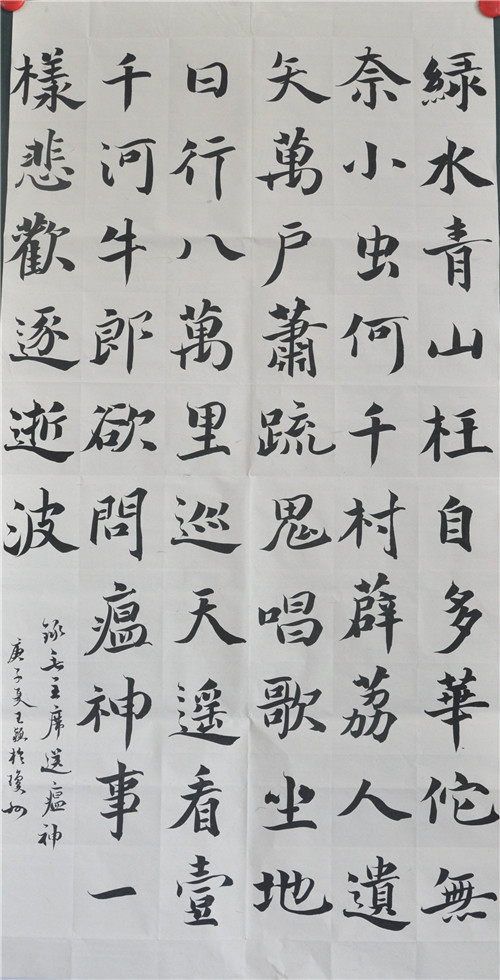 綠水青山枉自多華佗無
奈小虫何千村薜荔人遺
矢萬戶蕭疏鬼唱歌坐地
日行八萬里巡天遥看壹
千河牛郎欲問瘟神事一
樣悲歡逐逝波
錄毛主席送瘟神
庚子夏王於瓊州